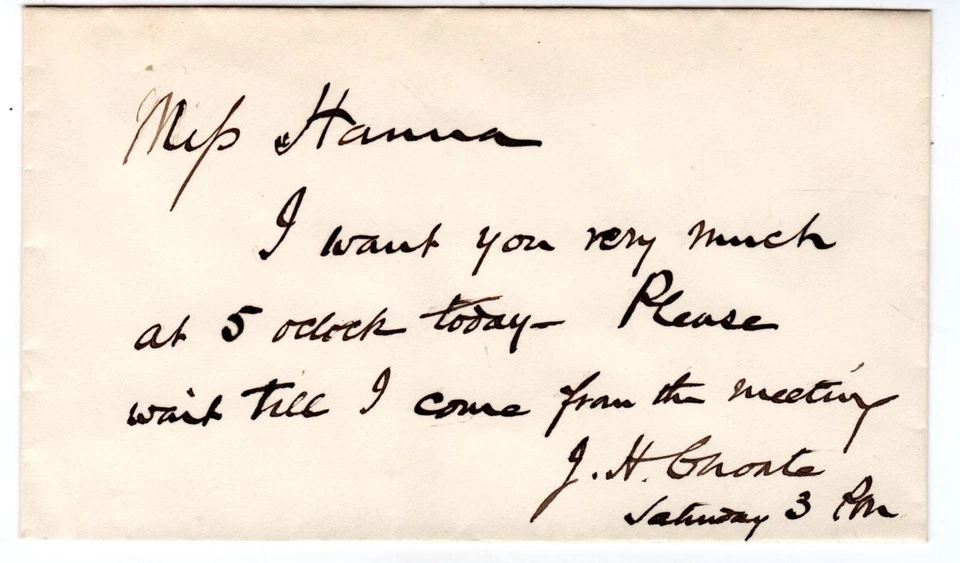 Miss Hanna
I want you very much
at 5 oclock today— Please
wait till I come from the meeting
J. H. Choate
Saturday 3 PM